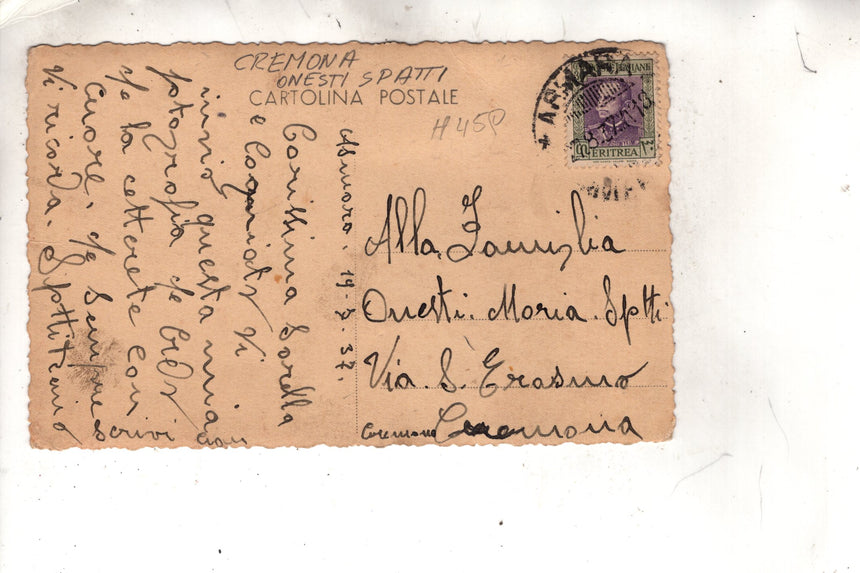 CREMONA
ONESTI SPATTI
CARTOLINA POSTALE
H 45P
ERITREA
Asmara. 19-7-37.
Carissima Sorella
e Cognato Vi
invio questa mia
fotografia che
che la con
Cuore. che Sempre scrivi
Vi ricorda.
Alla Famiglia
Onesti. Maria. Sptti
Via. S. Erasmo
Cremona Cremona